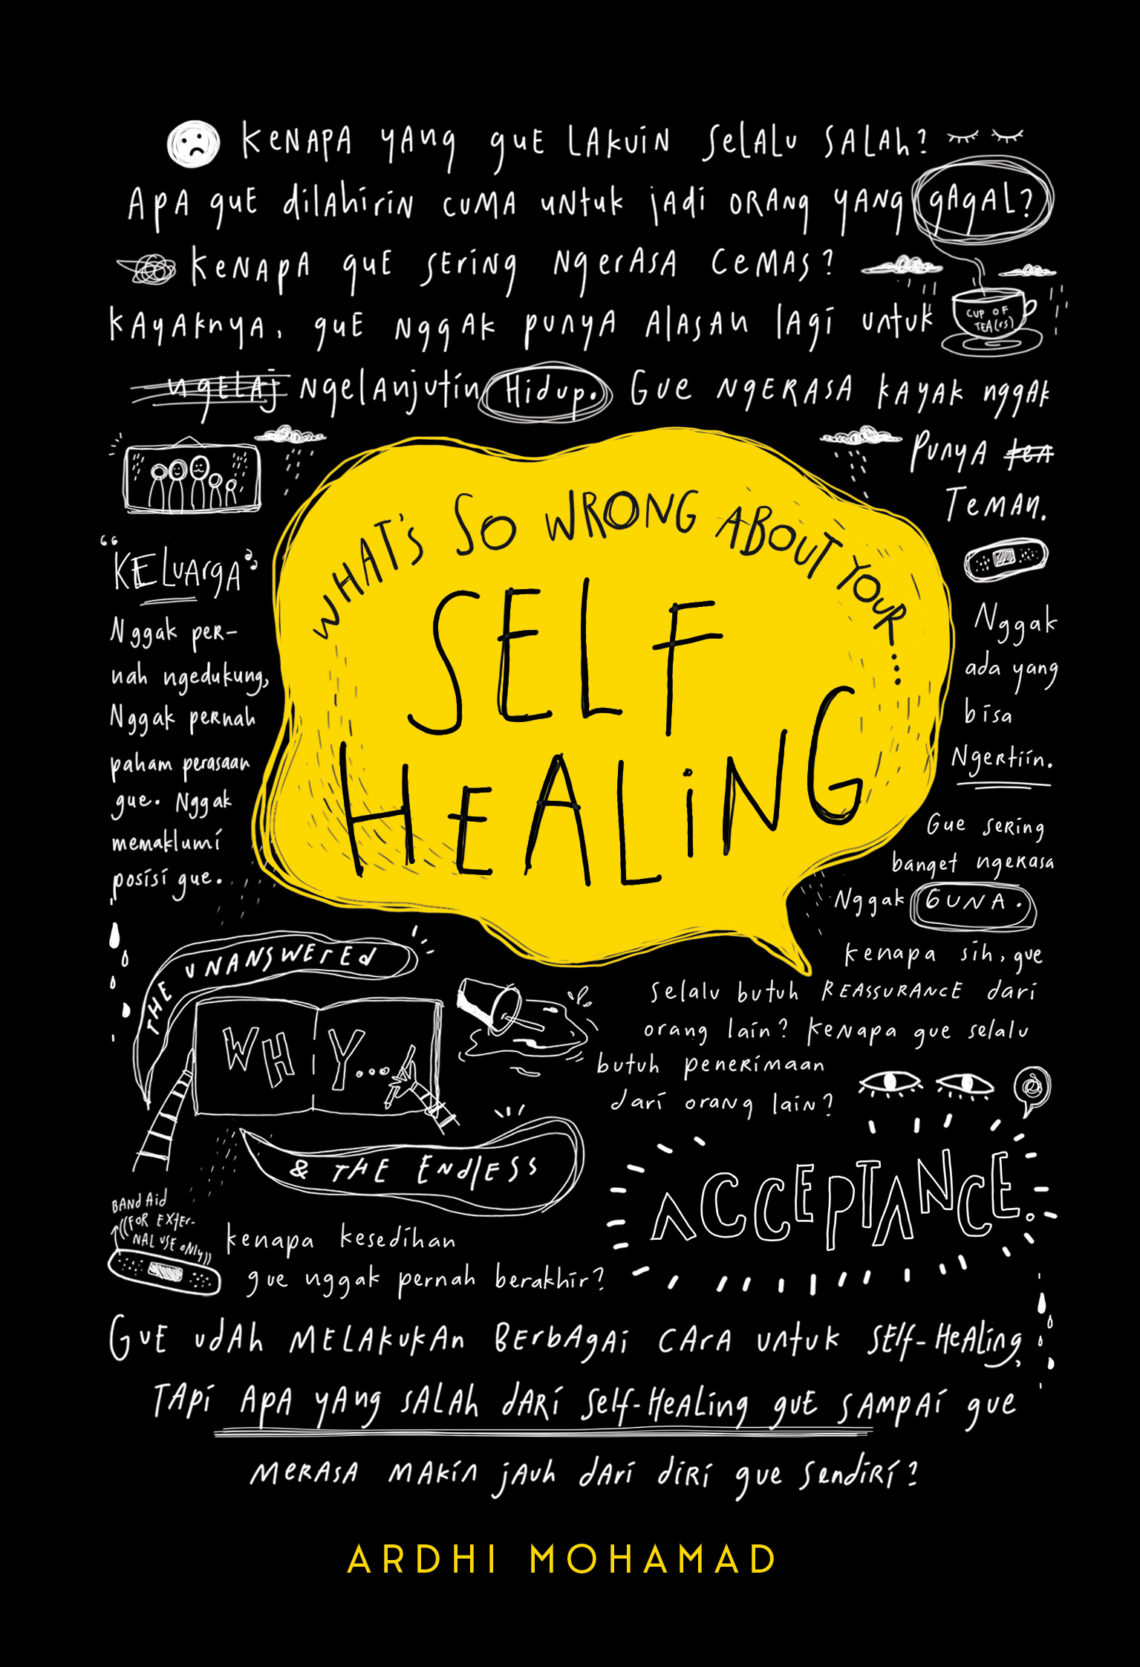 KENAPA YANG GUE LAKUIN SELALU SALAH?
APA GUE DILAHIRIN CUMA UNTUK JADI ORANG YANG GAGAL?
KENAPA GUE SERING NGERASA CEMAS?
KAYAKNYA, GUE NGGAK PUNYA ALASAN LAGI UNTUK
CUP OF
TEA(RS)
NGELAJ NGELANJUTIN HIDUP. GUE NGERASA KAYAK NGGAK
PUNYA TEA
TEMAN.
WHAT'S SO WRONG ABOUT YOUR...
SELF
HEALING
"KELUARGA"
Nggak per-
nah ngedukung,
Nggak pernah
paham perasaan
gue. Nggak
memaklumi
posisi gue.
Nggak
ada yang
bisa
Ngertiin.
Gue sering
banget ngerasa
Nggak GUNA.
kenapa sih, gue
selalu butuh REASSURANCE dari
orang lain? kenapa gue selalu
butuh penerimaan
dari orang lain?
THE UNANSWERED
WHY...
& THE ENDLESS
ACCEPTANCE.
BAND AID
((FOR EXTER-
NAL USE ONLY))
kenapa kesedihan
gue nggak pernah berakhir?
GUE UDAH MELAKUKAN BERBAGAI CARA UNTUK SELF-HEALING,
TAPI APA YANG SALAH DARI SELF-HEALING GUE SAMPAI GUE
MERASA MAKIN JAUH DARI DIRI GUE SENDIRI?
ARDHI MOHAMAD